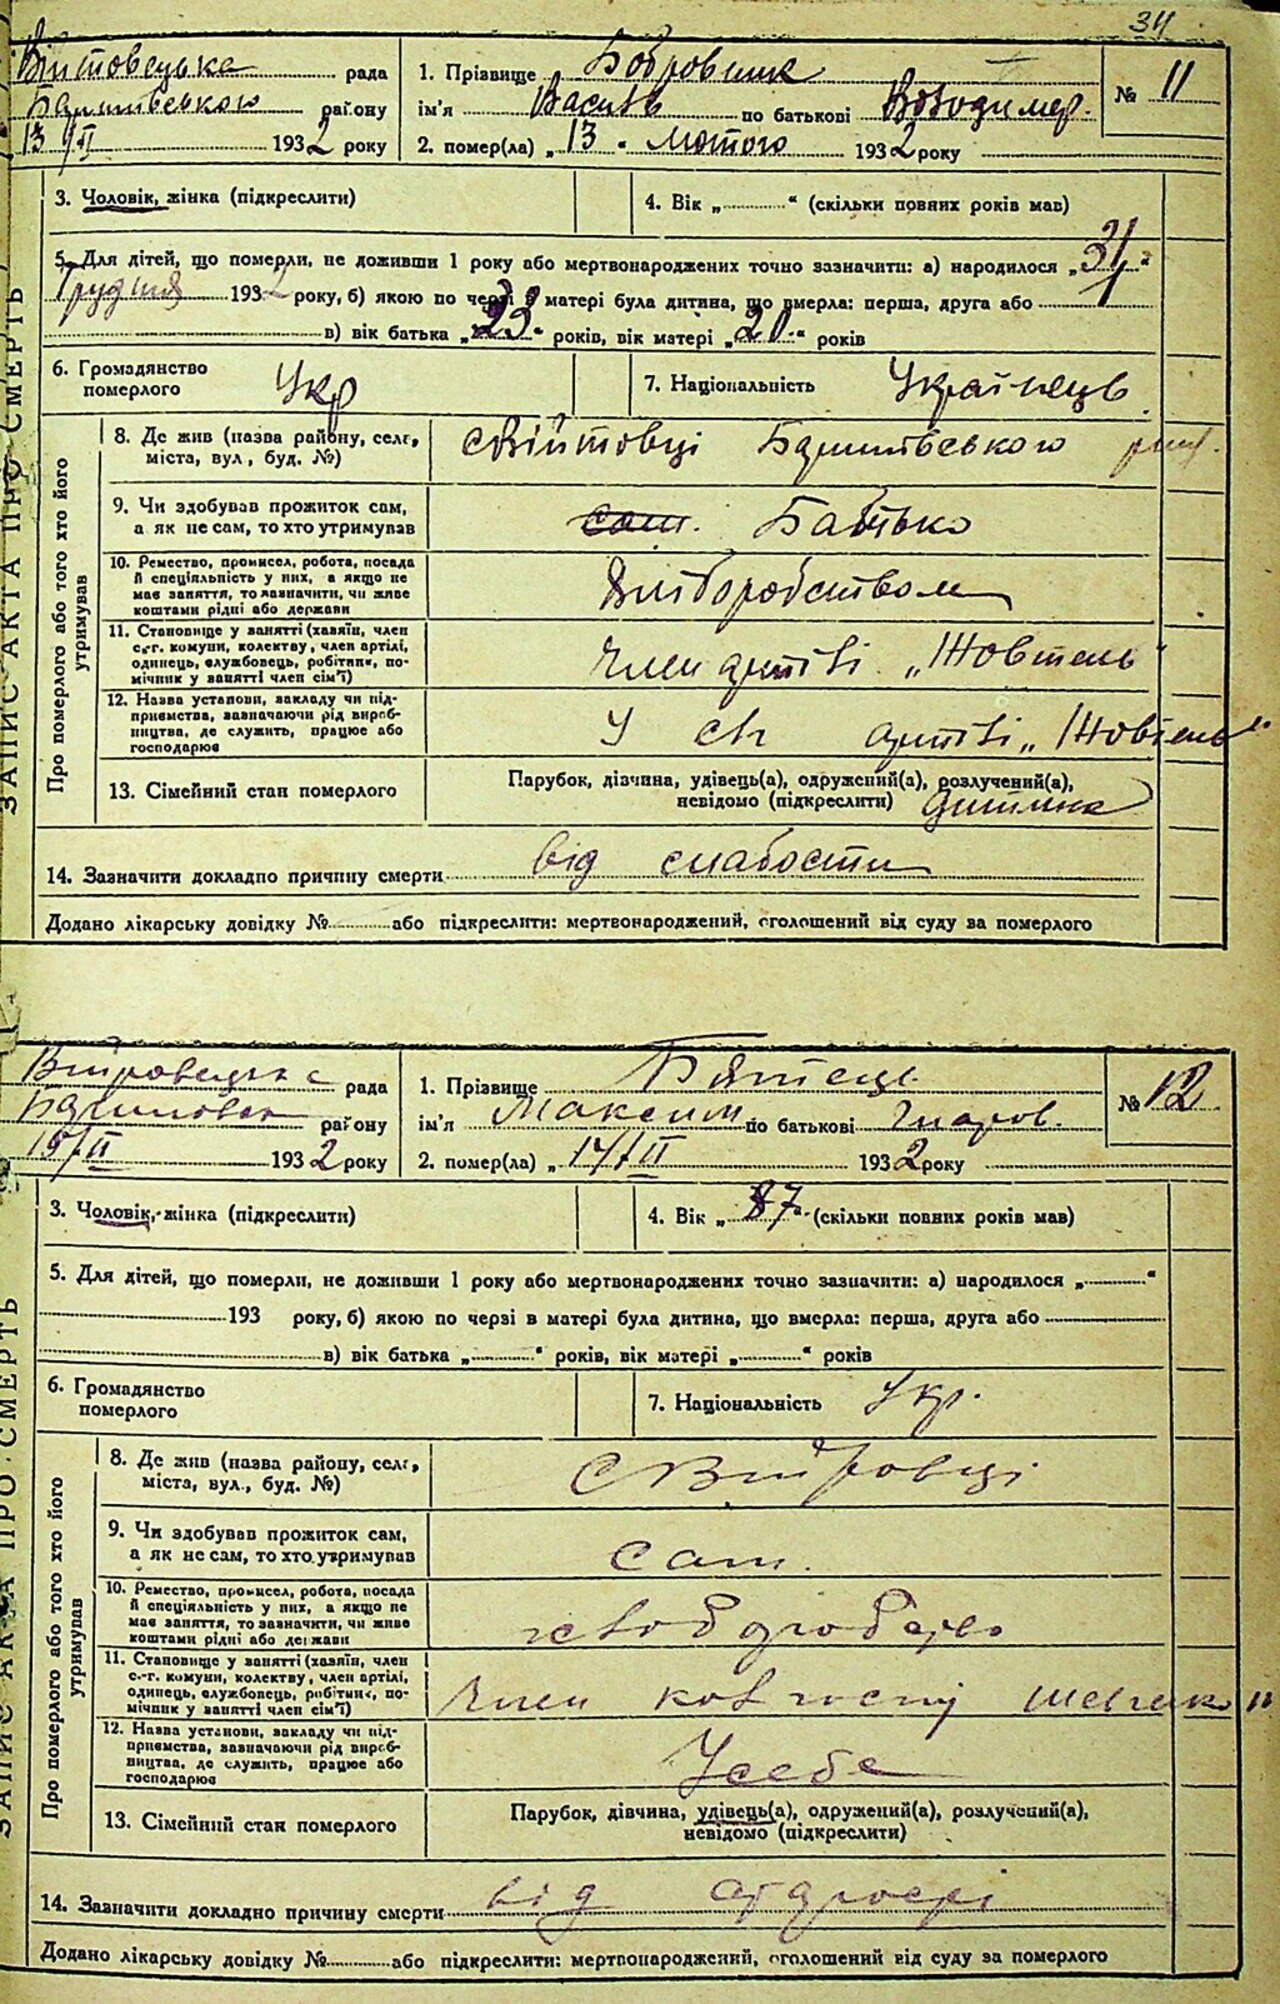 34
Війтовецька рада
району
13/II 1932 року
1. Прізвище Бобровник
ім'я Василь по батькові Володимер.
2. помер(ла) „13" лютого 1932 року
№ 11
3. Чоловік, жінка (підкреслити)
4. Вік „ " (скільки повних років мав)
5. Для дітей, що померли, не доживши 1 року або мертвонароджених точно зазначити: а) народилося „31"
Грудня 1932 року, б) якою по черзі в матері була дитина, що вмерла: перша, друга або 1
в) вік батька „23" років, вік матері „20" років
6. Громадянство
померлого Укр
7. Національність Українець
ЗАПИС АКТА ПРО СМЕРТЬ
Про померлого або того хто його
утримував
8. Де жив (назва району, село,
міста, вул, буд. №)
с Війтовці
9. Чи здобував прожиток сам,
а як не сам, то хто утримував
сам. Батько
10. Ремество, промисел, робота, посада
й спеціяльність у них, а якщо не
має заняття, то зазначити, чи живе
коштами рідні або держави
Хліборобством
11. Становище у занятті (хазяїн, член
с.-г. комуни, колективу, член артілі,
одинець, службовець, робітник, по-
мічник у занятті член сім'ї)
Член артілі „Жовтень"
12. Назва установи, закладу чи під-
приємства, зазначаючи рід вироб-
ництва, де служить, працює або
господарює
У с/г артілі „Жовтень"
13. Сімейний стан померлого
Парубок, дівчина, удівець(а), одружений(а), розлучений(а),
невідомо (підкреслити) дитина
14. Зазначити докладно причину смерти від слабости
Додано лікарську довідку № або підкреслити: мертвонароджений, оголошений від суду за померлого
рада
району
15/II 1932 року
1. Прізвище
ім'я Максим по батькові
2. помер(ла) „14/II 1932 року
№ 12
3. Чоловік, жінка (підкреслити)
4. Вік „87" (скільки повних років мав)
5. Для дітей, що померли, не доживши 1 року або мертвонароджених точно зазначити: а) народилося „ "
193 року, б) якою по черзі в матері була дитина, що вмерла: перша, друга або
в) вік батька „ " років, вік матері „ " років
6. Громадянство
померлого
7. Національність Укр.
ЗАПИС АКТА ПРО СМЕРТЬ
Про померлого або того хто його
утримував
8. Де жив (назва району, село,
міста, вул., буд. №)
9. Чи здобував прожиток сам,
а як не сам, то хто утримував
сам.
10. Ремество, промисел, робота, посада
й спеціяльність у них, а якщо не
має заняття, то зазначити, чи живе
коштами рідні або держави
11. Становище у занятті (хазяїн, член
с.-г. комуни, колективу, член артілі,
одинець, службовець, робітник, по-
мічник у занятті член сім'ї)
Член
12. Назва установи, закладу чи під-
приємства, зазначаючи рід вироб-
ництва, де служить, працює або
господарює
У себе
13. Сімейний стан померлого
Парубок, дівчина, удівець(а), одружений(а), розлучений(а),
невідомо (підкреслити)
14. Зазначити докладно причину смерти від
Додано лікарську довідку № або підкреслити: мертвонароджений, оголошений від суду за померлого